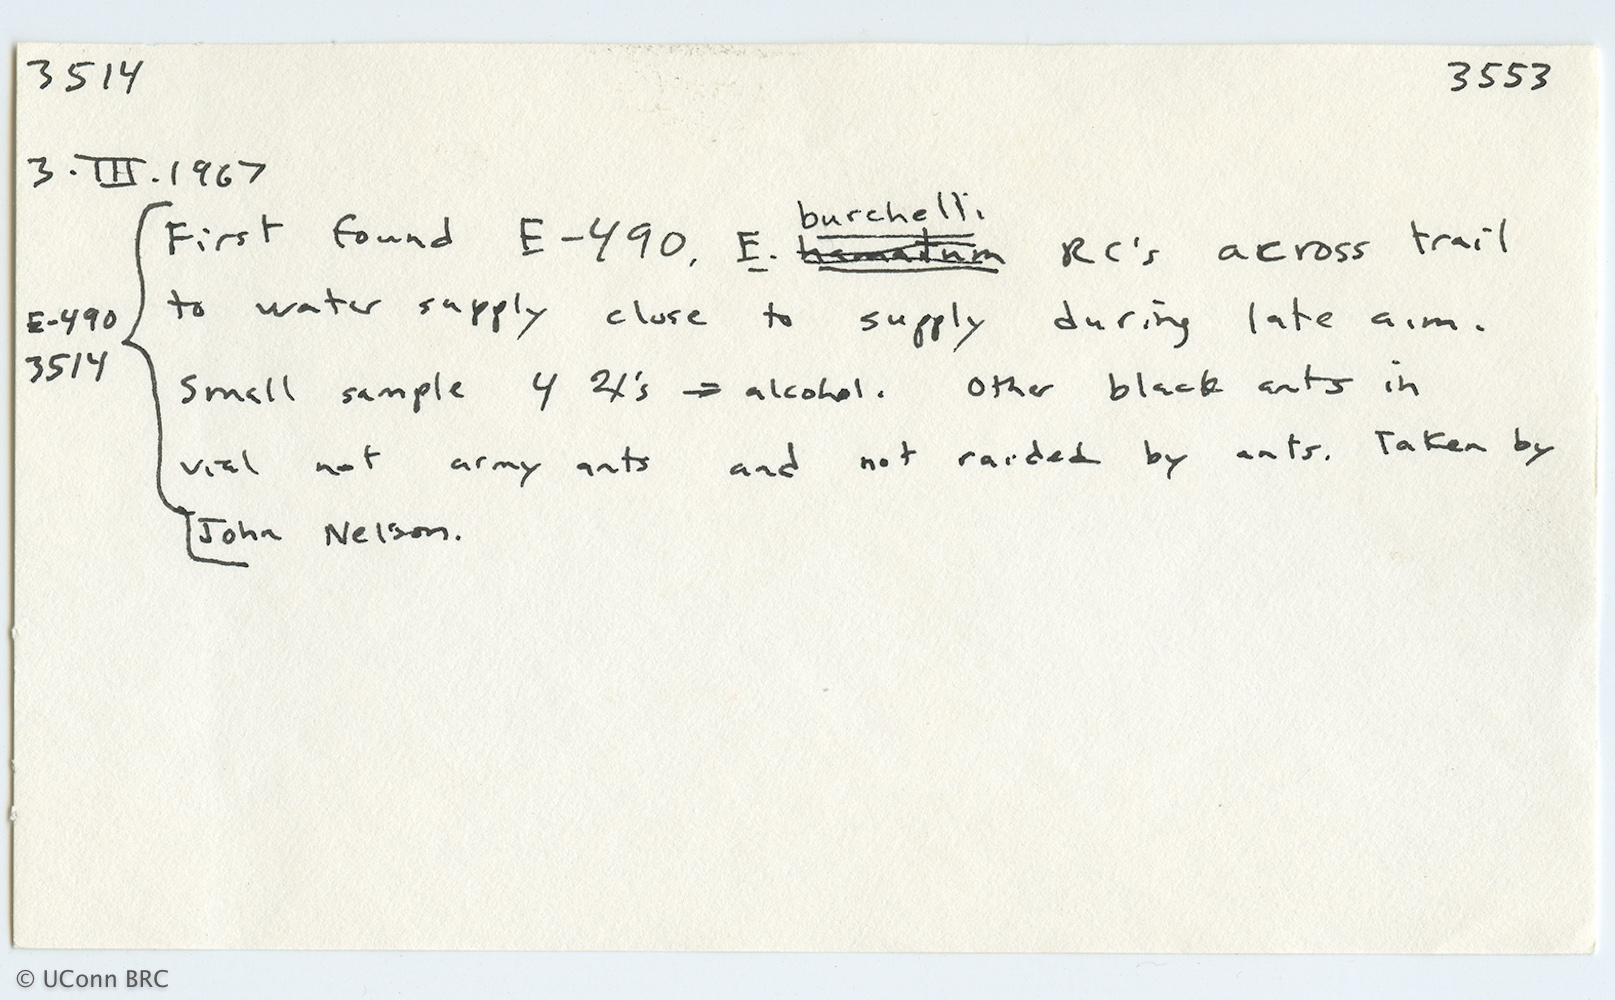 3514 3553
3.III.1967
burchelli
First found E-490, E. hamatum RC's across trail
to water supply close to supply during late a.m.
E-490
3514
Small sample 4 24's → alcohol. Other black ants in
vial not army ants and not raided by ants. Taken by
John Nelson.
© UConn BRC